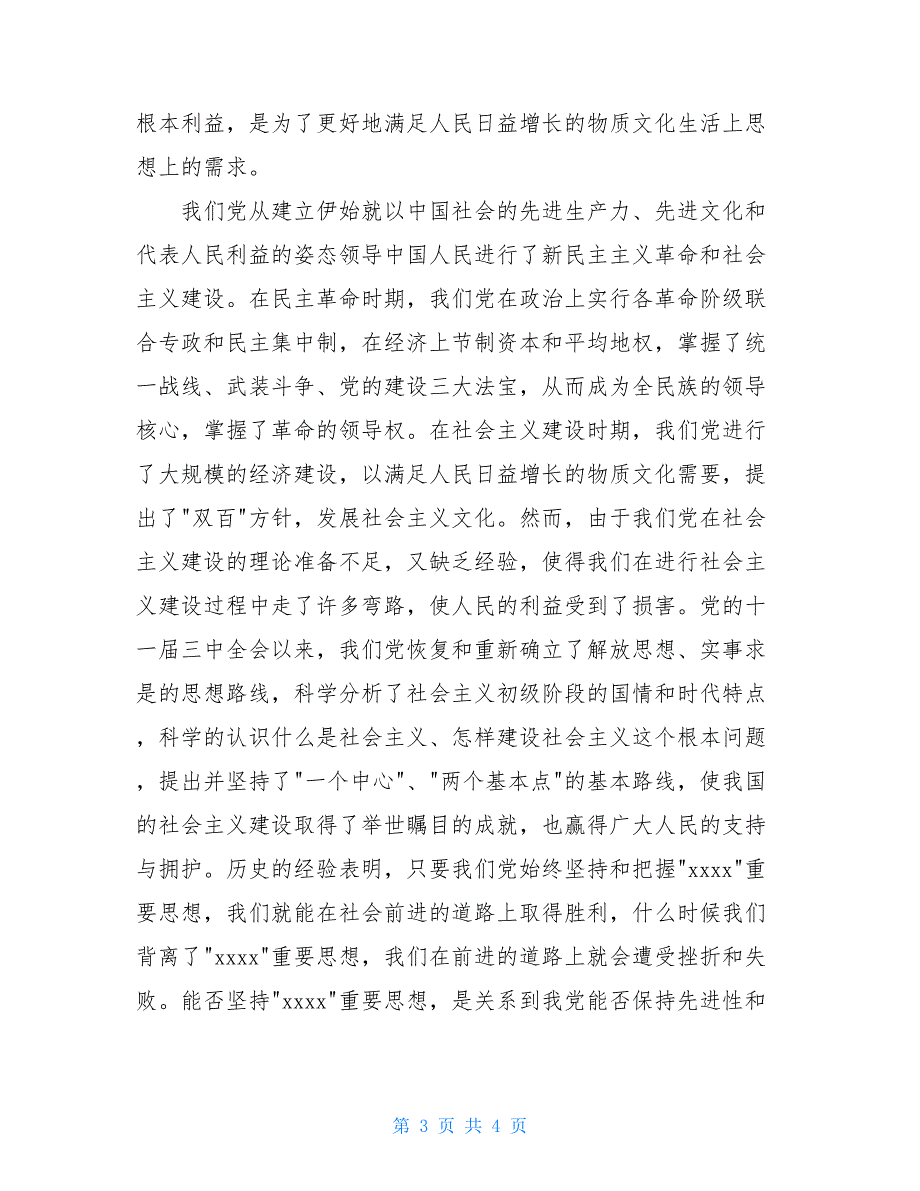 根本利益，是为了更好地满足人民日益增长的物质文化生活上思
想上的需求。
我们党从建立伊始就以中国社会的先进生产力、先进文化和
代表人民利益的姿态领导中国人民进行了新民主主义革命和社会
主义建设。在民主革命时期，我们党在政治上实行各革命阶级联
合专政和民主集中制，在经济上节制资本和平均地权，掌握了统
一战线、武装斗争、党的建设三大法宝，从而成为全民族的领导
核心，掌握了革命的领导权。在社会主义建设时期，我们党进行
了大规模的经济建设，以满足人民日益增长的物质文化需要，提
出了"双百"方针，发展社会主义文化。然而，由于我们党在社会
主义建设的理论准备不足，又缺乏经验，使得我们在进行社会主
义建设过程中走了许多弯路，使人民的利益受到了损害。党的十
一届三中全会以来，我们党恢复和重新确立了解放思想、实事求
是的思想路线，科学分析了社会主义初级阶段的国情和时代特点
，科学的认识什么是社会主义、怎样建设社会主义这个根本问题
，提出并坚持了"一个中心"、"两个基本点"的基本路线，使我国
的社会主义建设取得了举世瞩目的成就，也赢得广大人民的支持
与拥护。历史的经验表明，只要我们党始终坚持和把握"xxxx"重
要思想，我们就能在社会前进的道路上取得胜利，什么时候我们
背离了"xxxx"重要思想，我们在前进的道路上就会遭受挫折和失
败。能否坚持"xxxx"重要思想，是关系到我党能否保持先进性和
第 3 页 共 4 页